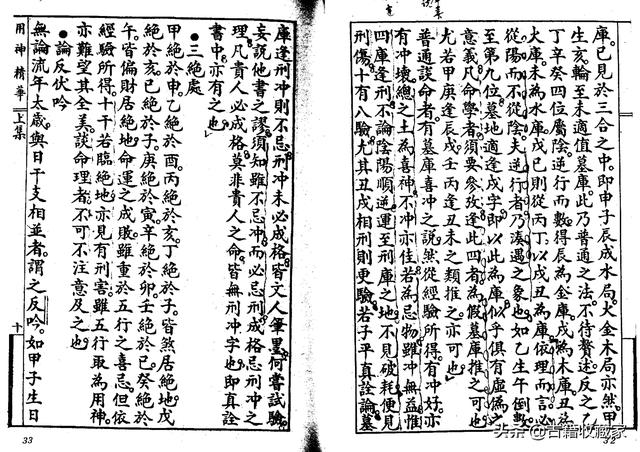 庫。已見於三合之中。即申子辰成水局。火金木局亦然。甲
生亥。輪至未適值墓庫。此乃普通之法。不待贅述。反之乙
丁辛癸四位屬陰。逆行而數。得辰為金庫。戌為木庫。丑
火庫。未為水庫。戊己則從丙丁。以戌丑為庫。依理而言。必
從陽而不從陰。夫逆行者。乃湊遇之象也。如乙生午。倒數
至第九位墓地。適逢戌字。即以此為庫。似乎俱有虛偽之
意義。凡命學者。須要參改。逢此四者。為假墓庫推之可也
尤若甲庚逢辰戌。壬丙逢丑未之類推之亦可也
普通談命者。有墓庫喜冲之說。然從經驗所得。有冲好。亦
有冲壞。總之土為喜神。不冲亦佳。若為忌物。雖冲無益。惟
四庫逢刑。不論陰陽順逆。運至庫之地。不見破耗。便見
刑傷。十有八驗。尤其丑戌相刑則更驗。若子平真詮論墓
32
庫逢刑冲則不忌。刑冲未必成格。皆文人筆墨。何嘗試驗。
妄說他書之謬。須知雖不忌冲。而必忌刑。成格忌刑冲之
理。凡貴人必成格。莫非貴人之命。皆無刑冲字也。即真詮
書中。亦有之也
●三絕處
甲絕於申。乙絕於酉。丙絕於亥。丁絕於子。皆煞居絕地。戊
絕於亥。己絕於子。庚絕於寅。辛絕於卯。壬絕於巳。癸絕於
午。皆偏財居絕地。命運之成敗。雖重於五行之喜忌。但依
經驗所得。十干若臨絕地。亦見有刑害。雖五行取為用神。
亦難望其全美。談命理者不可不注意及之也
●論反伏吟
無論流年太歲。與日干支相並者。謂之反吟。如甲子生日
用神精華 上集
十
33
头条 @古籍收藏家